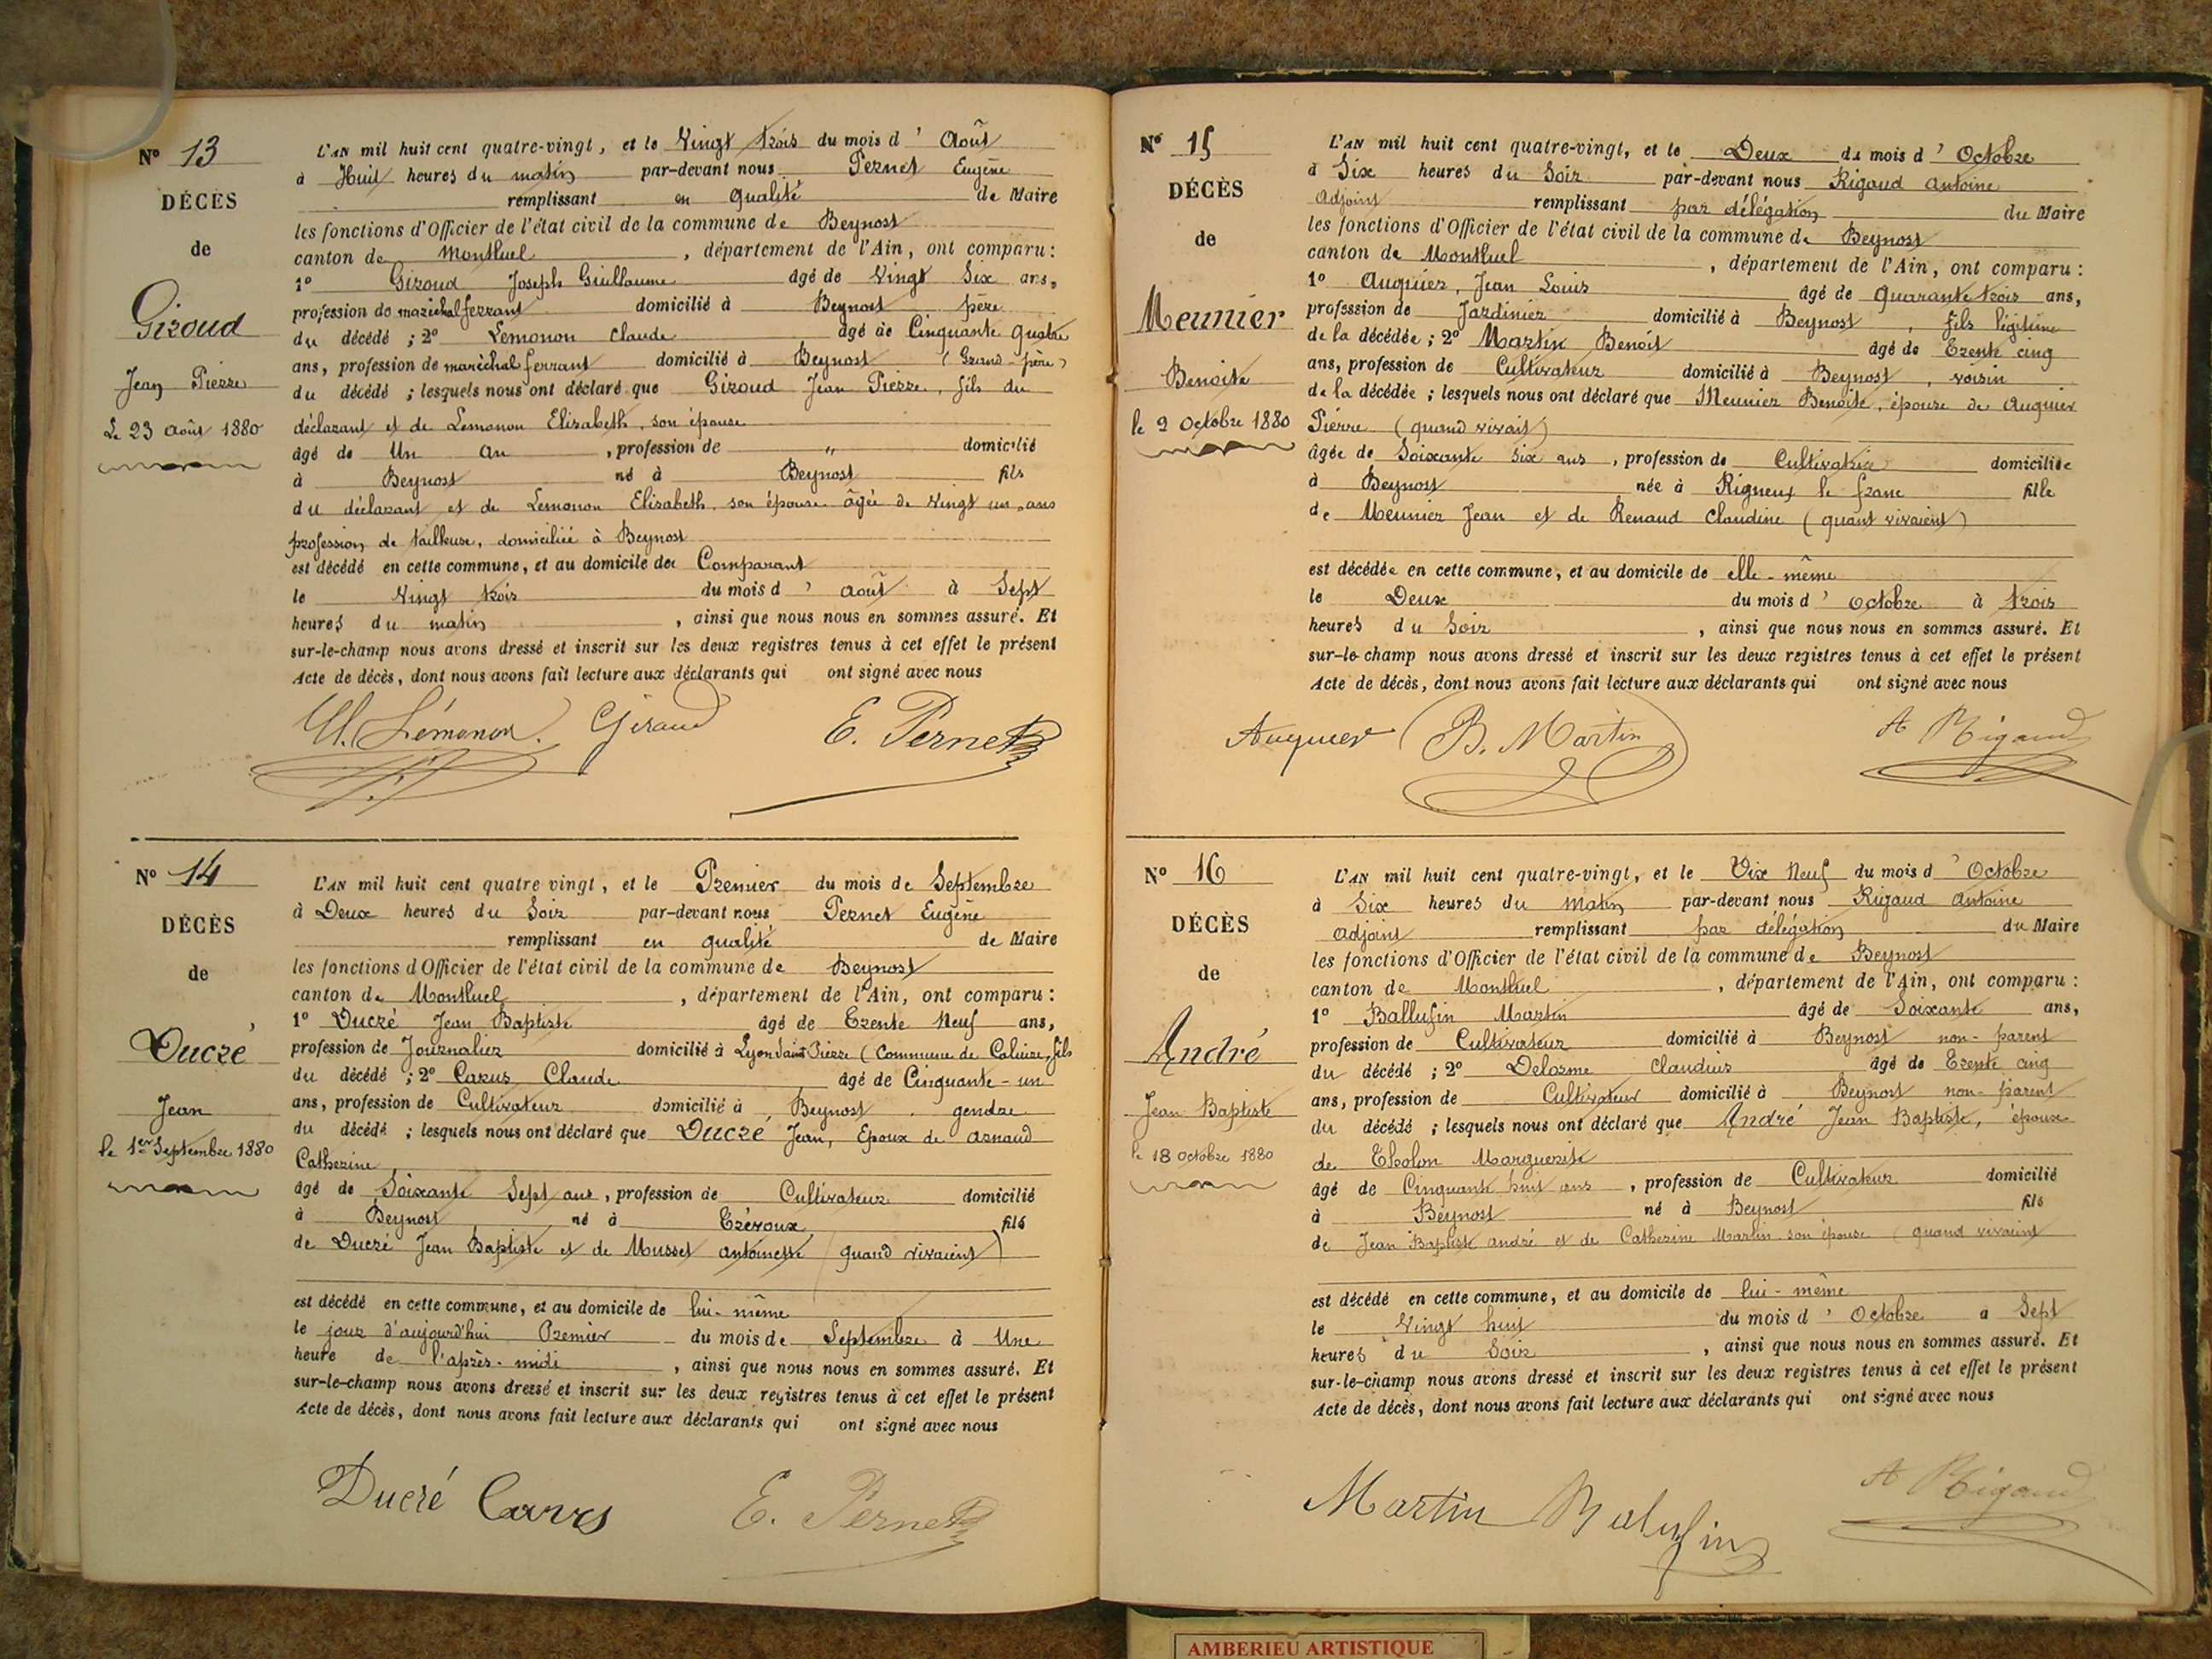 N° 13
DÉCÈS
de
Giroud
Jean Pierre
Le 23 Août 1880
L'AN mil huit cent quatre-vingt, et le Vingt trois du mois d' Août
à Huit heures du matin par-devant nous Pernet Eugène
remplissant en qualité de Maire
les fonctions d'Officier de l'état civil de la commune de Beynost
canton de Montluel, département de l'Ain, ont comparu :
1° Giroud Joseph Guillaume âgé de Vingt Six ans,
profession de maréchal ferrant domicilié à Beynost père
du décédé ; 2° Lemonon Claude âgé de Cinquante quatre
ans, profession de maréchal ferrant domicilié à Beynost (Grand-père)
du décédé ; lesquels nous ont déclaré que Giroud Jean Pierre, fils du
déclarant et de Lemonon Elisabeth, son épouse
âgé de Un an, profession de " domicilié
à Beynost né à Beynost fils
du déclarant et de Lemonon Elisabeth, son épouse âgée de vingt un ans
profession de tailleuse, domiciliée à Beynost
est décédé en cette commune, et au domicile du Comparant
le Vingt trois du mois d' août à Sept
heures du matin, ainsi que nous nous en sommes assuré. Et
sur-le-champ nous avons dressé et inscrit sur les deux registres tenus à cet effet le présent
Acte de décès, dont nous avons fait lecture aux déclarants qui ont signé avec nous
Cl. Lémonon. Giraud E. Pernet
N° 14
DÉCÈS
de
Ducré
Jean
le 1er Septembre 1880
L'AN mil huit cent quatre vingt, et le Premier du mois de Septembre
à Deux heures du Soir par-devant nous Pernet Eugène
remplissant en qualité de Maire
les fonctions d'Officier de l'état civil de la commune de Beynost
canton de Montluel, département de l'Ain, ont comparu :
1° Ducré Jean Baptiste âgé de Trente Neuf ans,
profession de Journalier domicilié à Lyon Saint Pierre (Commune de Caluire, fils
du décédé ; 2° Carus Claude âgé de Cinquante-un
ans, profession de Cultivateur domicilié à Beynost, gendre
du décédé ; lesquels nous ont déclaré que Ducré Jean, Epoux de arnaud
Catherine
âgé de Soixante Sept ans, profession de Cultivateur domicilié
à Beynost né à Trévoux fils
de Ducré Jean Baptiste et de Musset antoinette (quand vivaient)
est décédé en cette commune, et au domicile de lui-même
le jour d'aujourd'hui Premier du mois de Septembre à Une
heure de l'après-midi, ainsi que nous nous en sommes assuré. Et
sur-le-champ nous avons dressé et inscrit sur les deux registres tenus à cet effet le présent
Acte de décès, dont nous avons fait lecture aux déclarants qui ont signé avec nous
Ducré Carus E. Pernet
N° 15
DÉCÈS
de
Meunier
Benoite
le 2 Octobre 1880
L'AN mil huit cent quatre-vingt, et le Deux du mois d' Octobre
à Six heures du Soir par-devant nous Rigaud antoine
Adjoint remplissant par délégation du Maire
les fonctions d'Officier de l'état civil de la commune de Beynost
canton de Montluel, département de l'Ain, ont comparu :
1° Auguier, Jean Louis âgé de quarante trois ans,
profession de Jardinier domicilié à Beynost, fils légitime
de la décédée ; 2° Martin Benoît âgé de Trente cinq
ans, profession de Cultivateur domicilié à Beynost, voisin
de la décédée ; lesquels nous ont déclaré que Meunier Benoite, épouse de Auguier
Pierre (quand vivait)
âgée de Soixante six ans, profession de Cultivatrice domiciliée
à Beynost née à Rigneux le franc fille
de Meunier Jean et de Renaud Claudine (quant vivaient)
est décédée en cette commune, et au domicile de elle-même
le Deux du mois d' octobre à trois
heures du Soir, ainsi que nous nous en sommes assuré. Et
sur-le-champ nous avons dressé et inscrit sur les deux registres tenus à cet effet le présent
Acte de décès, dont nous avons fait lecture aux déclarants qui ont signé avec nous
Auguier B. Martin A Rigaud
N° 16
DÉCÈS
de
André
Jean Baptiste
le 18 octobre 1880
L'AN mil huit cent quatre-vingt, et le Dix Neuf du mois d' Octobre
à Six heures du Matin par-devant nous Rigaud Antoine
adjoint remplissant par délégation du Maire
les fonctions d'Officier de l'état civil de la commune de Beynost
canton de Montluel, département de l'Ain, ont comparu :
1° Ballufin Martin âgé de Soixante ans,
profession de Cultivateur domicilié à Beynost non-parent
du décédé ; 2° Delorme Claudius âgé de Trente cinq
ans, profession de Cultivateur domicilié à Beynost non-parent
du décédé ; lesquels nous ont déclaré que André Jean Baptiste, époux
de Tholon Marguerite
âgé de Cinquante huit ans, profession de Cultivateur domicilié
à Beynost né à Beynost fils
de Jean Baptiste andré et de Catherine Martin son épouse (quand vivaient
est décédé en cette commune, et au domicile de lui-même
le Vingt huit du mois d' Octobre a Sept
heures du Soir, ainsi que nous nous en sommes assuré. Et
sur-le-champ nous avons dressé et inscrit sur les deux registres tenus à cet effet le présent
Acte de décès, dont nous avons fait lecture aux déclarants qui ont signé avec nous
Martin Balufin A Rigaud
AMBERIEU ARTISTIQUE